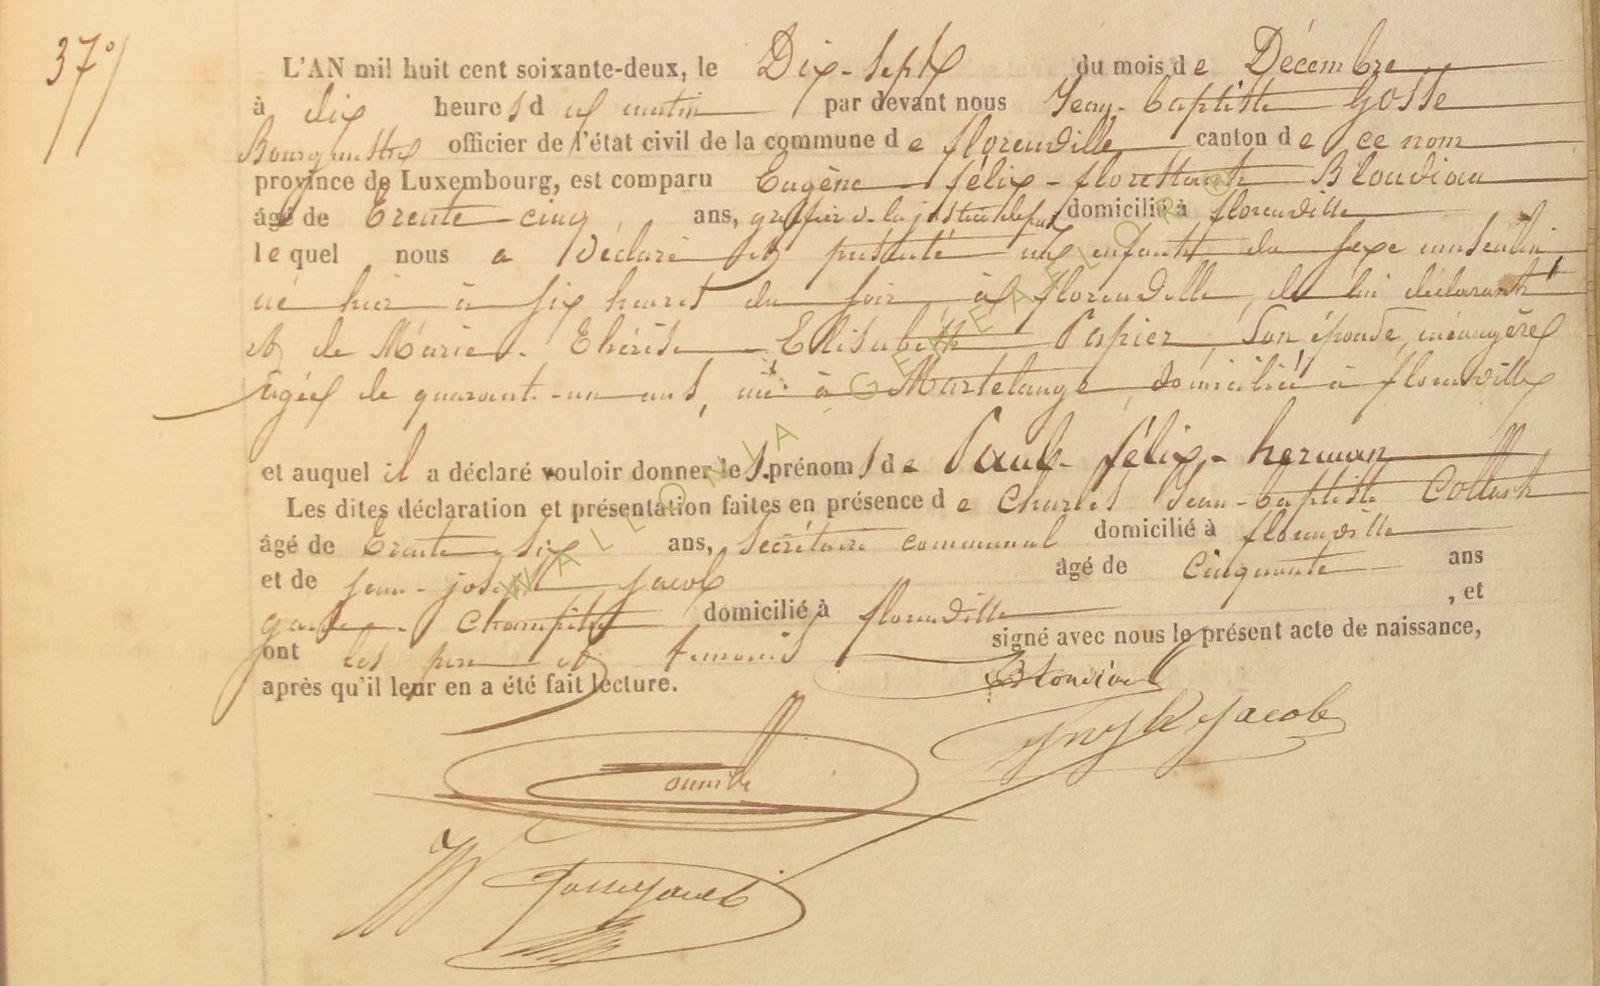 37°/
L'AN mil huit cent soixante-deux, le Dix-Sept du mois de Décembre
à dix heures du matin par devant nous Jean-Baptiste Gosse
Bourgmestre officier de l'état civil de la commune de florenville canton de ce nom
province de Luxembourg, est comparu Eugène-félix-florestant Blondiau
âgé de Trente cinq ans, greffier de la justice de paix domicilié à florenville
lequel nous a déclaré et présenté un enfant du sexe masculin
né hier à six heures du soir, à florenville, de lui déclarant
et de Marie-Thérèse-Elisabeth Papier, son épouse, ménagère
âgée de quarant-un ans, née à Martelange, domiciliée à florenville
et auquel il a déclaré vouloir donner les prénoms de Paul-félix-herman
Les dites déclaration et présentation faites en présence de Charles Jean-baptiste Collard
âgé de Trente-six ans, Secrétaire communal domicilié à florenville
et de jean-joseph jacob âgé de Cinquante ans
garde-Champêtre domicilié à florenville , et
ont les père et témoins signé avec nous le présent acte de naissance,
après qu'il leur en a été fait lecture.
Blondiau
Jacob
WALLONIA-GENEAFLOR®